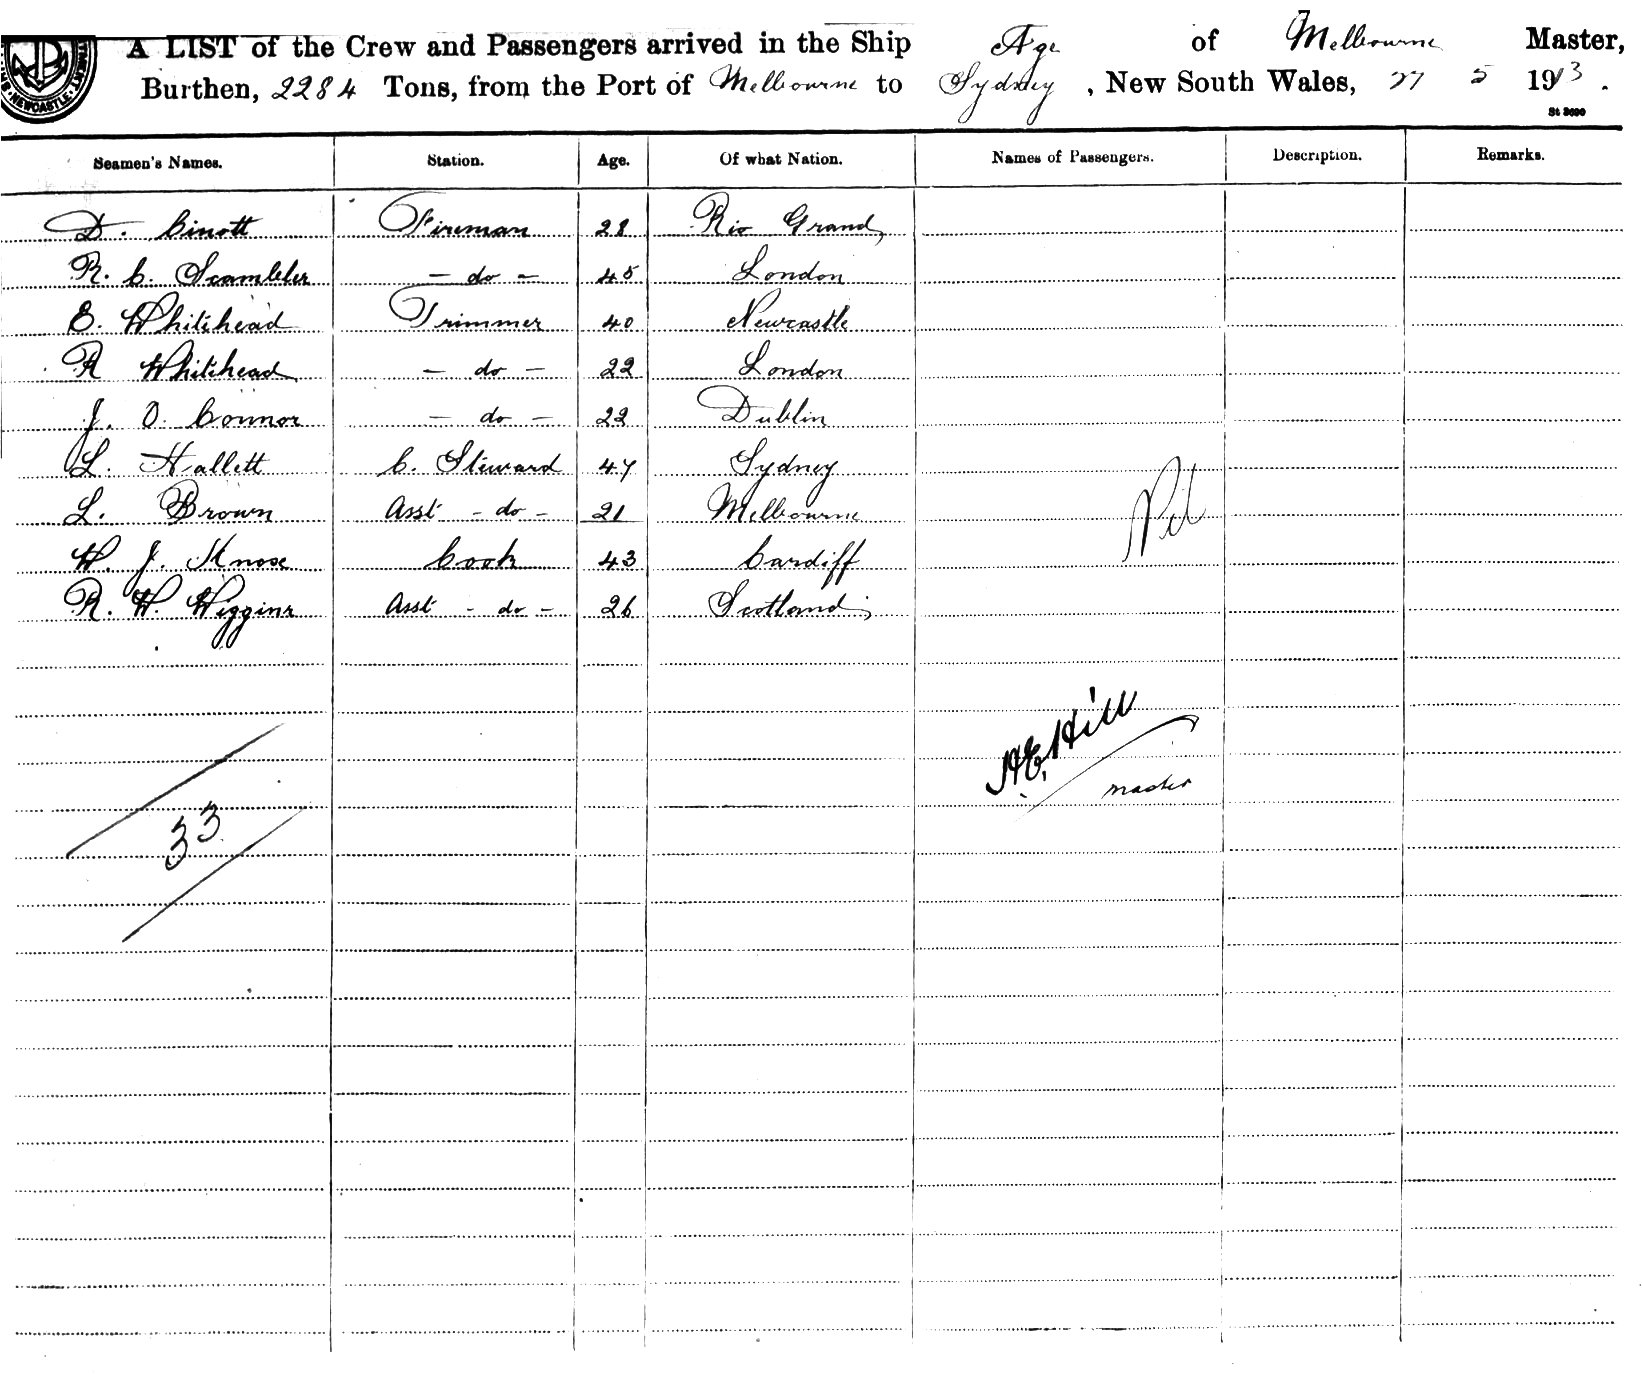 A LIST of the Crew and Passengers arrived in the Ship Age of Melbourne Master,
Burthen, 2284 Tons, from the Port of Melbourne to Sydney, New South Wales, 27 5 1913.
NEWCASTLE
Seamen's Names. Station. Age. Of what Nation. Names of Passengers. Description. Remarks.
D. Cinott Fireman 28 Rio Grand
R. C. Scambler - do - 45 London
E. Whitehead Trimmer 40 Newcastle
R Whitehead - do - 22 London
J. O. Connor - do - 22 Dublin
L. Hallett C. Steward 47 Sydney
L. Brown Asst - do - 21 Melbourne
Nil
W. J. Cook 43 Cardiff
R. W. Higgins Asst - do - 26 Scotland
A.E. Hill
master
33